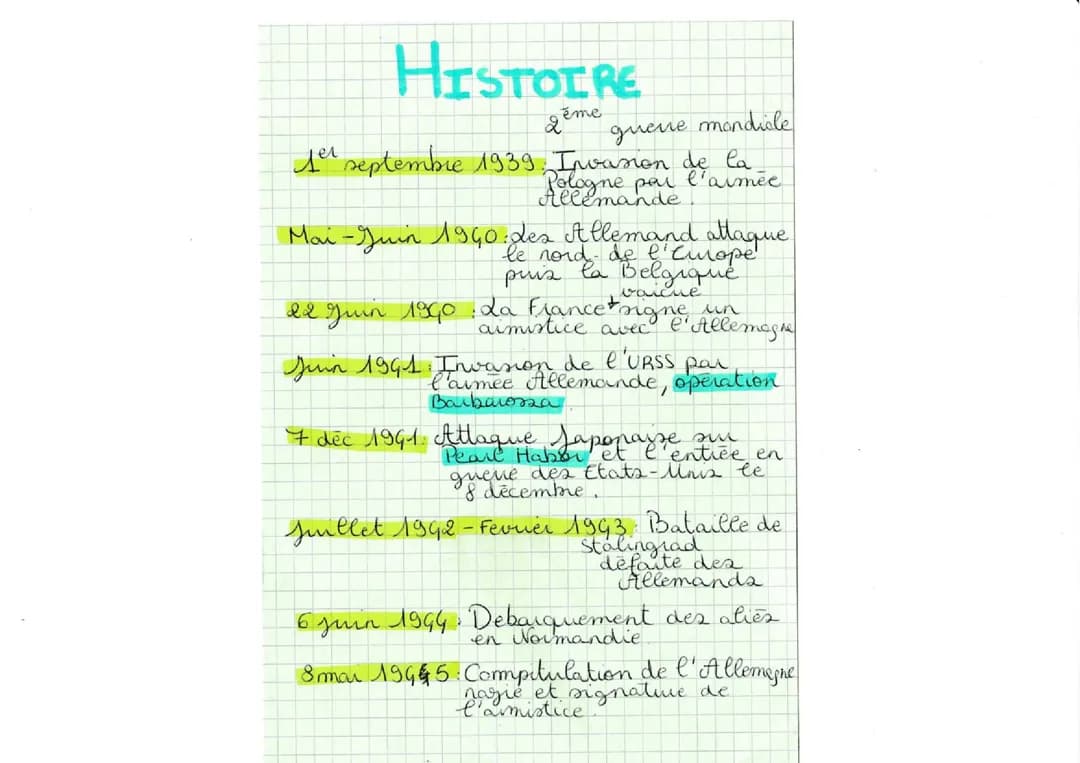 HISTOIRE
2ème guerre mondiale
1er septembre 1939 : Invasion de la
Pologne par l'armée
Allemande.
Mai - Juin 1940 : des Allemand attaque
le nord de l'Europe
puis la Belgique
vaicue
22 Juin 1940 : La France + signe un
armistice avec l'Allemagne
Juin 1941 : Invasion de l'URSS par
l'armée Allemande, opération
Barbarossa
7 déc 1941 : Attaque Japonaise sur
Pearl Habor et l'entrée en
guerre des Etats-Unis le
8 décembre.
Juillet 1942 - Fevrier 1943 : Bataille de
Stalingrad
défaite des
Allemands
6 juin 1944 : Debarquement des aliés
en Normandie.
8 mai 1945 : Compitulation de l'Allemagne
nazie et signature de
l'armistice.